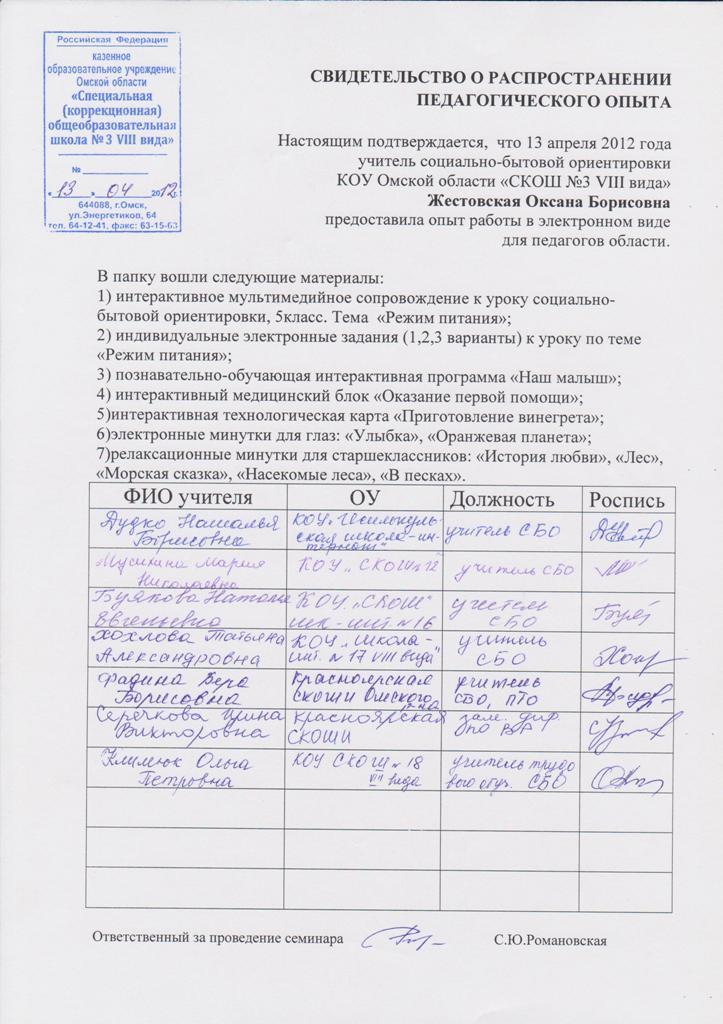 Российская Федерация
казенное
образовательное учреждение
Омской области
«Специальная
(коррекционная)
общеобразовательная
школа №3 VIII вида»
№
« 13 » 04 2012г.
644088, г.Омск,
ул.Энергетиков, 64
тел. 64-12-41, факс: 63-15-63
СВИДЕТЕЛЬСТВО О РАСПРОСТРАНЕНИИ
ПЕДАГОГИЧЕСКОГО ОПЫТА
Настоящим подтверждается, что 13 апреля 2012 года
учитель социально-бытовой ориентировки
КОУ Омской области «СКОШ №3 VIII вида»
Жестовская Оксана Борисовна
предоставила опыт работы в электронном виде
для педагогов области.
В папку вошли следующие материалы:
1) интерактивное мультимедийное сопровождение к уроку социально-
бытовой ориентировки, 5класс. Тема «Режим питания»;
2) индивидуальные электронные задания (1,2,3 варианты) к уроку по теме
«Режим питания»;
3) познавательно-обучающая интерактивная программа «Наш малыш»;
4) интерактивный медицинский блок «Оказание первой помощи»;
5)интерактивная технологическая карта «Приготовление винегрета»;
6)электронные минутки для глаз: «Улыбка», «Оранжевая планета»;
7)релаксационные минутки для старшеклассников: «История любви», «Лес»,
«Морская сказка», «Насекомые леса», «В песках».
ФИО учителя ОУ Должность Роспись
Дудко Наталья КОУ „Исилькуль- учитель СБО
Борисовна ская школа-ин-
тернат"
Мусихина Мария КОУ „СКОШ №12" учитель СБО
Николаевна
Буякова Наталия КОУ „СКОШ" учитель
Евгеньевна шк-инт №16 СБО
Хохлова Татьяна КОУ „Школа- учитель
Александровна инт. №17 VIII вида" СБО
Фадина Вера Красноярская учитель
Борисовна СКОШИ Омского СБО, ПТО
р-на
Серечкова Ирина Красноярская зам. дир
Викторовна СКОШИ по ВР
Климюк Ольга КОУ СКОШ №18 учитель трудо
Петровна вида вого обуч. СБО
Ответственный за проведение семинара С.Ю.Романовская